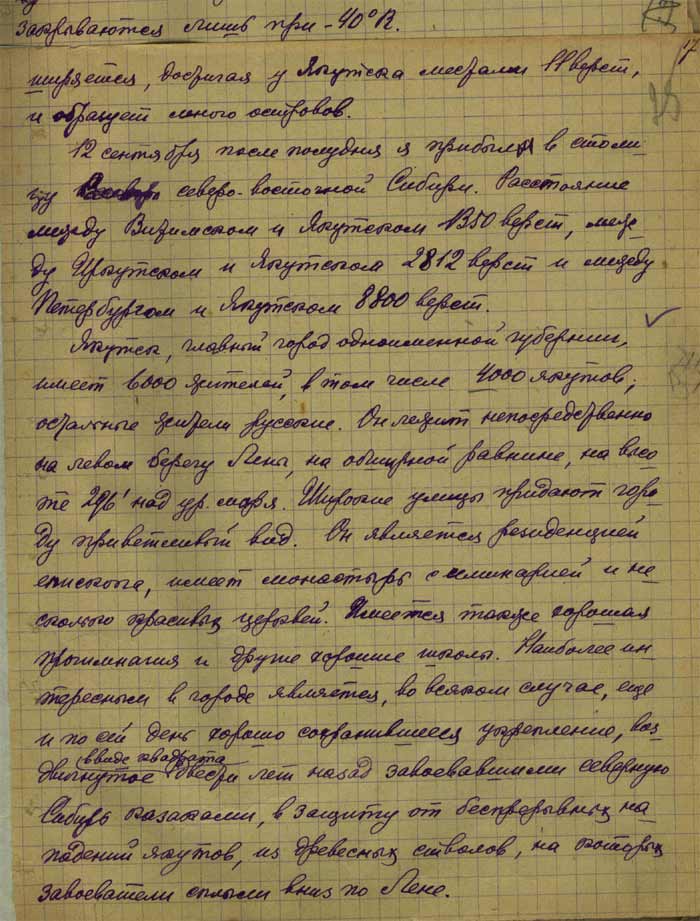 закрываются лишь при -40°R.
17
ширяется, достигая у Якутска местами 11 верст,
и образует много островов.
12 сентября после полудня я прибыл в столи-
цу северо-восточной Сибири. Расстояние
между Витимском и Якутском 1350 верст, меж-
ду Иркутском и Якутском 2812 верст и между
Петербургом и Якутском 8800 верст.
Якутск, главный город одноименной губернии,
имеет 6000 жителей, в том числе 4000 якутов;
остальные жители русские. Он лежит непосредственно
на левом берегу Лены, на обширной равнине, на высо-
те над ур. моря. Широкие улицы придают горо-
ду приветливый вид. Он является резиденцией
епископа, имеет монастырь с семинарией и не-
сколько красивых церквей. Имеется также хорошая
прогимназия и друие хорошие школы. Наиболее ин-
тересным в городе является, во всяком случае, еще
и по сей день хорошо сохранившееся укрепление, воз-
ввиде квадрата
двигнутое двести лет назад завоевавшими северную
Сибирь казаками, в защиту от беспрерывных на-
падений якутов, из древесных стволов, на которых
завоеватели сплыли вниз по Лене.